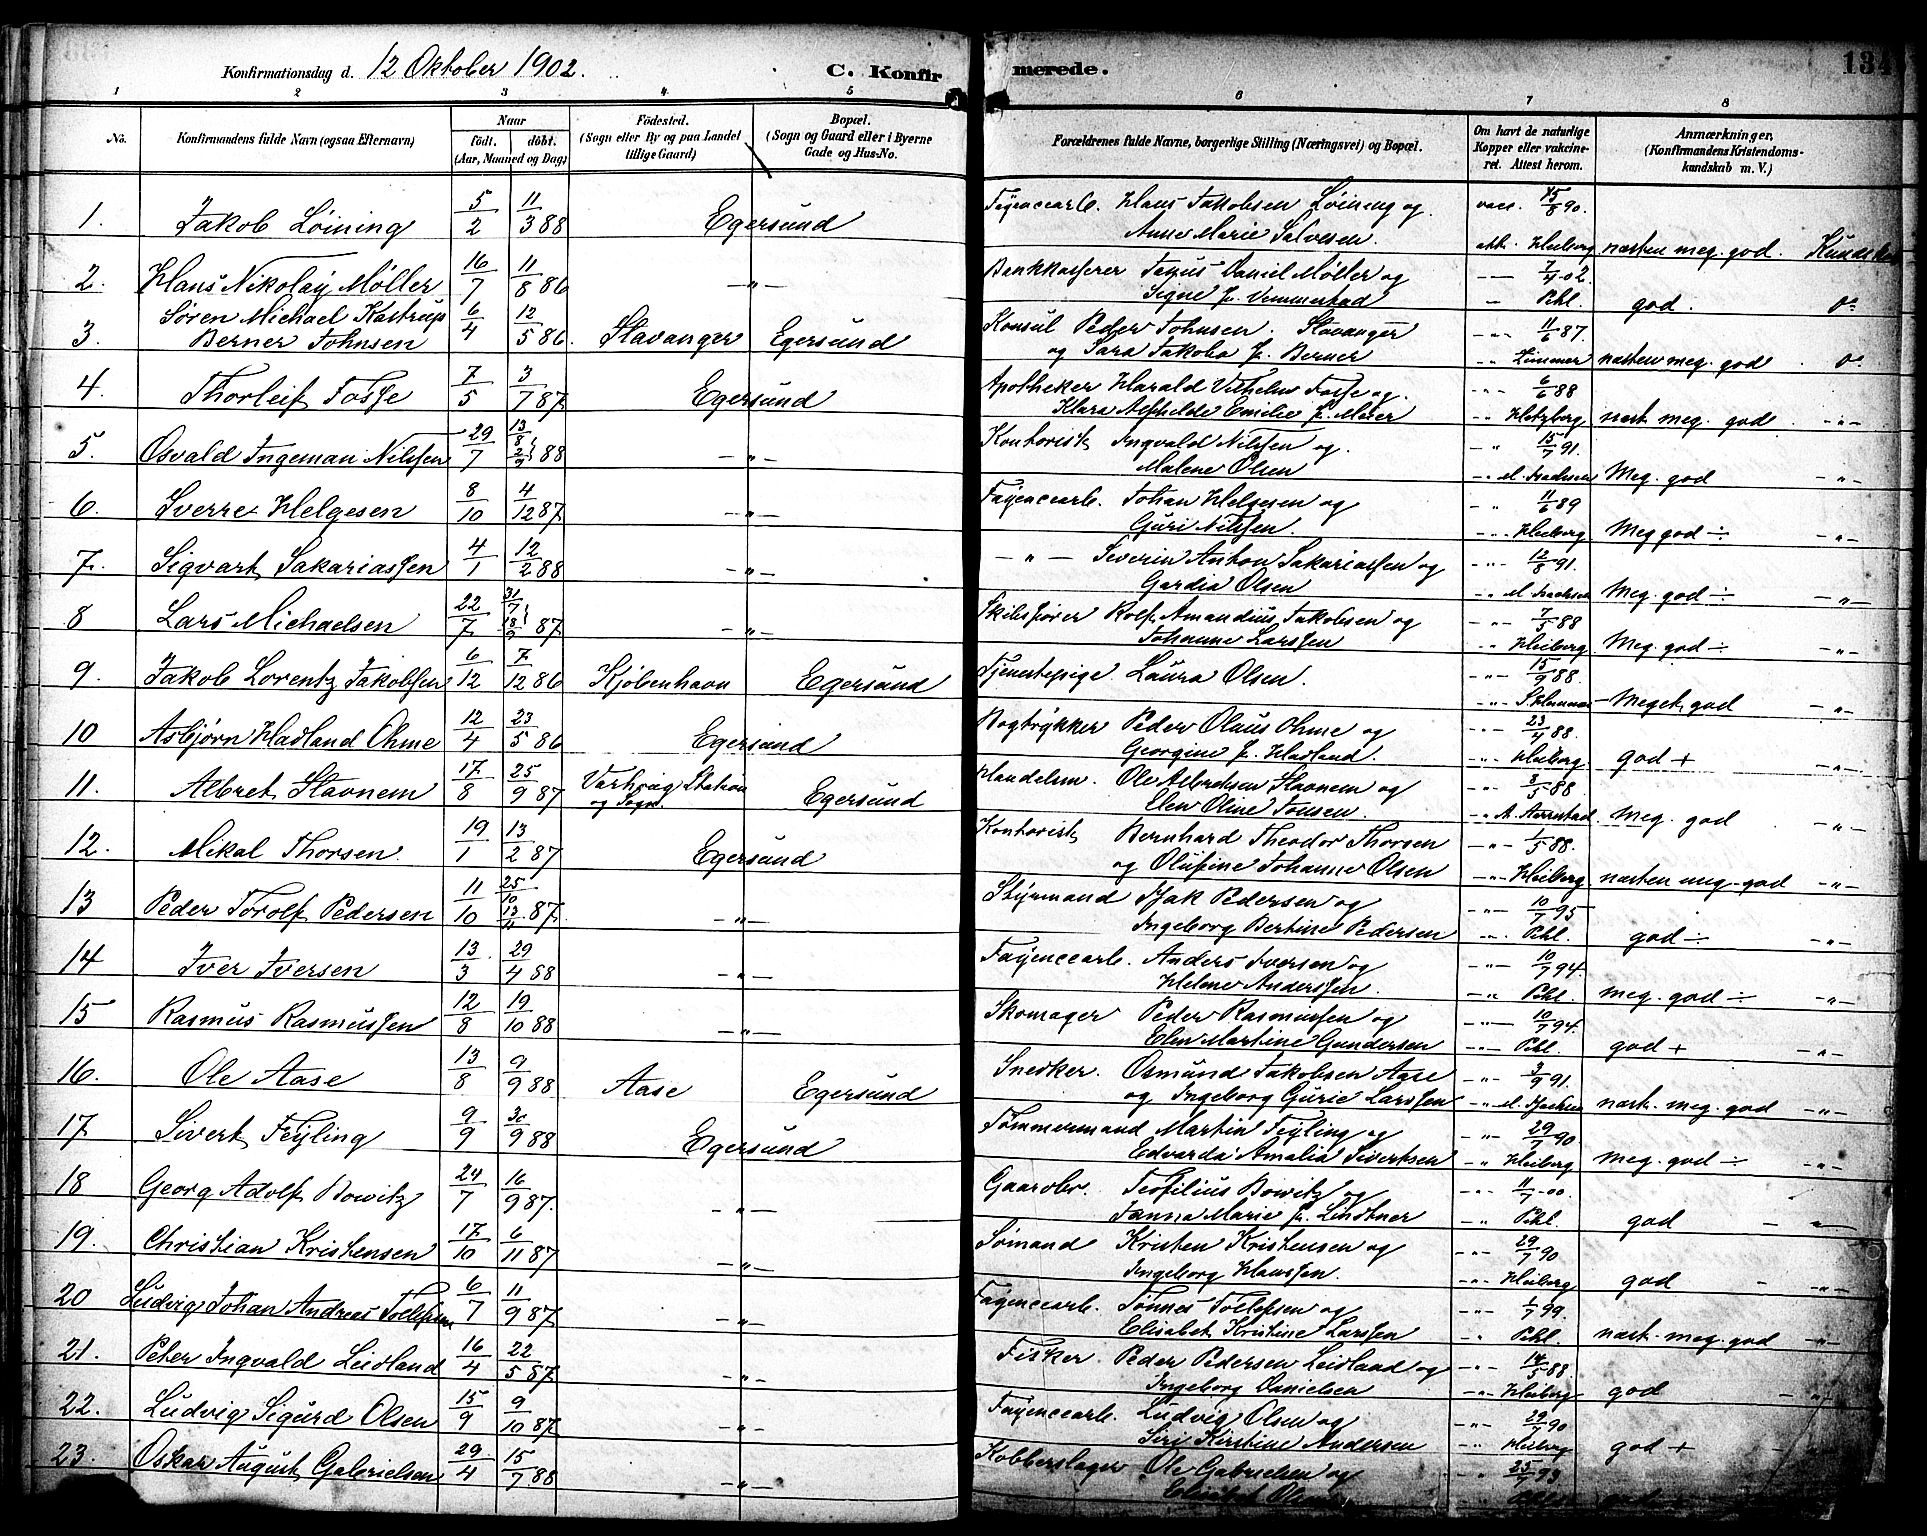 Konfirmationsdag d. 12 Oktober 1902. C. Konfirmerede. 134
1 2 3 4 5 6 7 8
No. Konfirmandens fulde Navn (ogsaa Efternavn) Naar født. døbt. (Aar, Maaned og Dag) Fødested. (Sogn eller By og paa Landet tillige Gaard) Bopæl. (Sogn og Gaard eller i Byerne Gade og Hus-No. Forældrenes fulde Navne, borgerlige Stilling (Næringsvei) og Bopæl. Om havt de naturlige Kopper eller vakcineret. Attest herom. Anmærkninger. (Konfirmandens Kristendomskundskab m. V.)
1. Jakob Løining 5/2 11/3 88 Egersund Fayencearb. Hans Jakobsen Løining og vacc. 15/8 90.
Anne Marie Salvesen. att. Heiberg næsten meg. god. Kundskab
2. Hans Nikolay Møller 16/7 11/8 86 —„— Bankkasserer Jayus Daniel Møller og —„— 7/4 02
Signe f. Vemmestad „ Pihl. god. do
3. Søren Michael Kastrup 6/4 12/5 86. Stavanger Egersund Konsul Peder Johnsen. Stavanger —„— 11/6 87.
Berner Johnsen og Sara Jakoba f. Berner „ næsten meg. god do
4. Thorleif Fosse 7/5 3/7 87. Egersund Apotheker Harald Vilhelm Fosse og —„— 6/6 88
Klara Alfhilde Emilie f. Meier „ Hetzberg næst meg. god —„—
5. Osvald Ingeman Nilssen 29/7 13/8 2/9 88 —„— Kontorist Ingvald Nilssen og. „ 15/7 91.
Malene Olsen —„— Meg. god —„—
6. Sverre Helgesen 8/10 4/12 87. —„— Fayencearb. Johan Helgesen og —„— 11/6 89
Guri Nilssen. —„— Heiberg Meg god ÷ —„—
7. Sigvart Sakariassen 4/1 12/2 88 —„— —„— Severin Anton Sakariassen og —„— 12/8 91.
Gardia Olsen „ Meg. god ÷ —„—
8 Lars Michaelsen 22/7 31/7 18/9 87. —„— Skibsfører Rolf Amandius Jakobsen og —„— 7/5 88
Johanne Larssen „ Heiberg Meg. god ÷ —„—
9. Jakob Lorentz Jakobsen 6/12 7/12 86 Kjøbenhavn Egersund Tjenestepige Laura Olsen. —„— 15/9 88.
—„— Meget god —„—
10 Asbjørn Hadland Ohme 12/4 23/5 86 Egersund Bogtrykker Peder Olaus Ohme og —„— 23/4 88.
Georgine f. Hadland. —„— Heiberg god + —„—
11. Albret Stavnem 17/8 25/9 87 Varhaug Station og Sogn. Egersund Handelsm. Ole Albretsen Stavnem og —„— 3/5 88.
Elen Oline Tonsen. —„— Meg. god —„—
12. Mikal Thorsen. 19/1 13/2 87 Egersund Kontorist Bernhard Theodor Thorsen —„— 1/5 88.
og Olufine Johanne Olsen —„— Heiberg næsten meg. god —„—
13 Peder Torolf Pedersen 11/10 25/10 13/11 87. —„— Styrmand Isak Pedersen og —„— 10/7 95
Ingeborg Bertine Pedersen —„— Pihl. god ÷ —„—
14 Iver Iversen 13/3 29/4 88 —„— Fayencearb. Anders Iversen og —„— 10/7 94.
Helene Anderssen. —„— Pihl. meg. god ÷ —„—
15 Rasmus Rasmussen 12/8 19/10 88 —„— Skomager Peder Rasmussen og —„— 10/7 94.
Elen Martine Gundersen —„— Pihl. god + —„—
16. Ole Aase 13/8 9/9 88 Aase Egersund Snedker. Osmund Jakobsen Aase —„— 3/9 91.
og Ingeborg Gurie Larssen „ næst. meg. god —„—
17 Sivert Feyling 9/9 30/9 88 Egersund Tømmermand Martin Feyling og —„— 29/7 90
Edvarda Amalia Sivertsen —„ Heiberg meg. god ÷ —„—
18 Georg Adolf Bowitz 24/7 16/9 87. —„— Gaardbr. Teofilius Bowitz og —„— 11/7 00.
Fanna Marie f. Lindtner —„ Pihl. god —„—
19. Christian Kristensen 17/10 6/11 87 —„— Sømand Kristen Kristensen og —„— 29/7 90
Ingeborg Hanssen. —„— Heiberg god —„—
20 Ludvig Johan Andreas Tollefsen 6/7 11/9 87. —„— Fayencearb. Tønnes Tollefsen og —„— 1/7 99.
Elisabet Kristine Larssen „ Pihl. næst. meg. god —„—
21. Peter Ingvald Leidland 16/4 22/5 87. —„— Fisker. Peder Pedersen Leidland og —„— 14/5 88.
Ingeborg Danielsen —„— Heiberg god —„—
22. Ludvig Sigurd Olsen 15/9 9/10 87. —„— Fayencearb. Ludvig Olsen og —„— 29/7 90
Siri Kirstine Andersen —„— Heiberg god +
23. Oskar August Gabrielsen 29/4 15/7 88 —„— Kobberslager Ole Gabrielsen og —„— 25/7 93
Elisabet